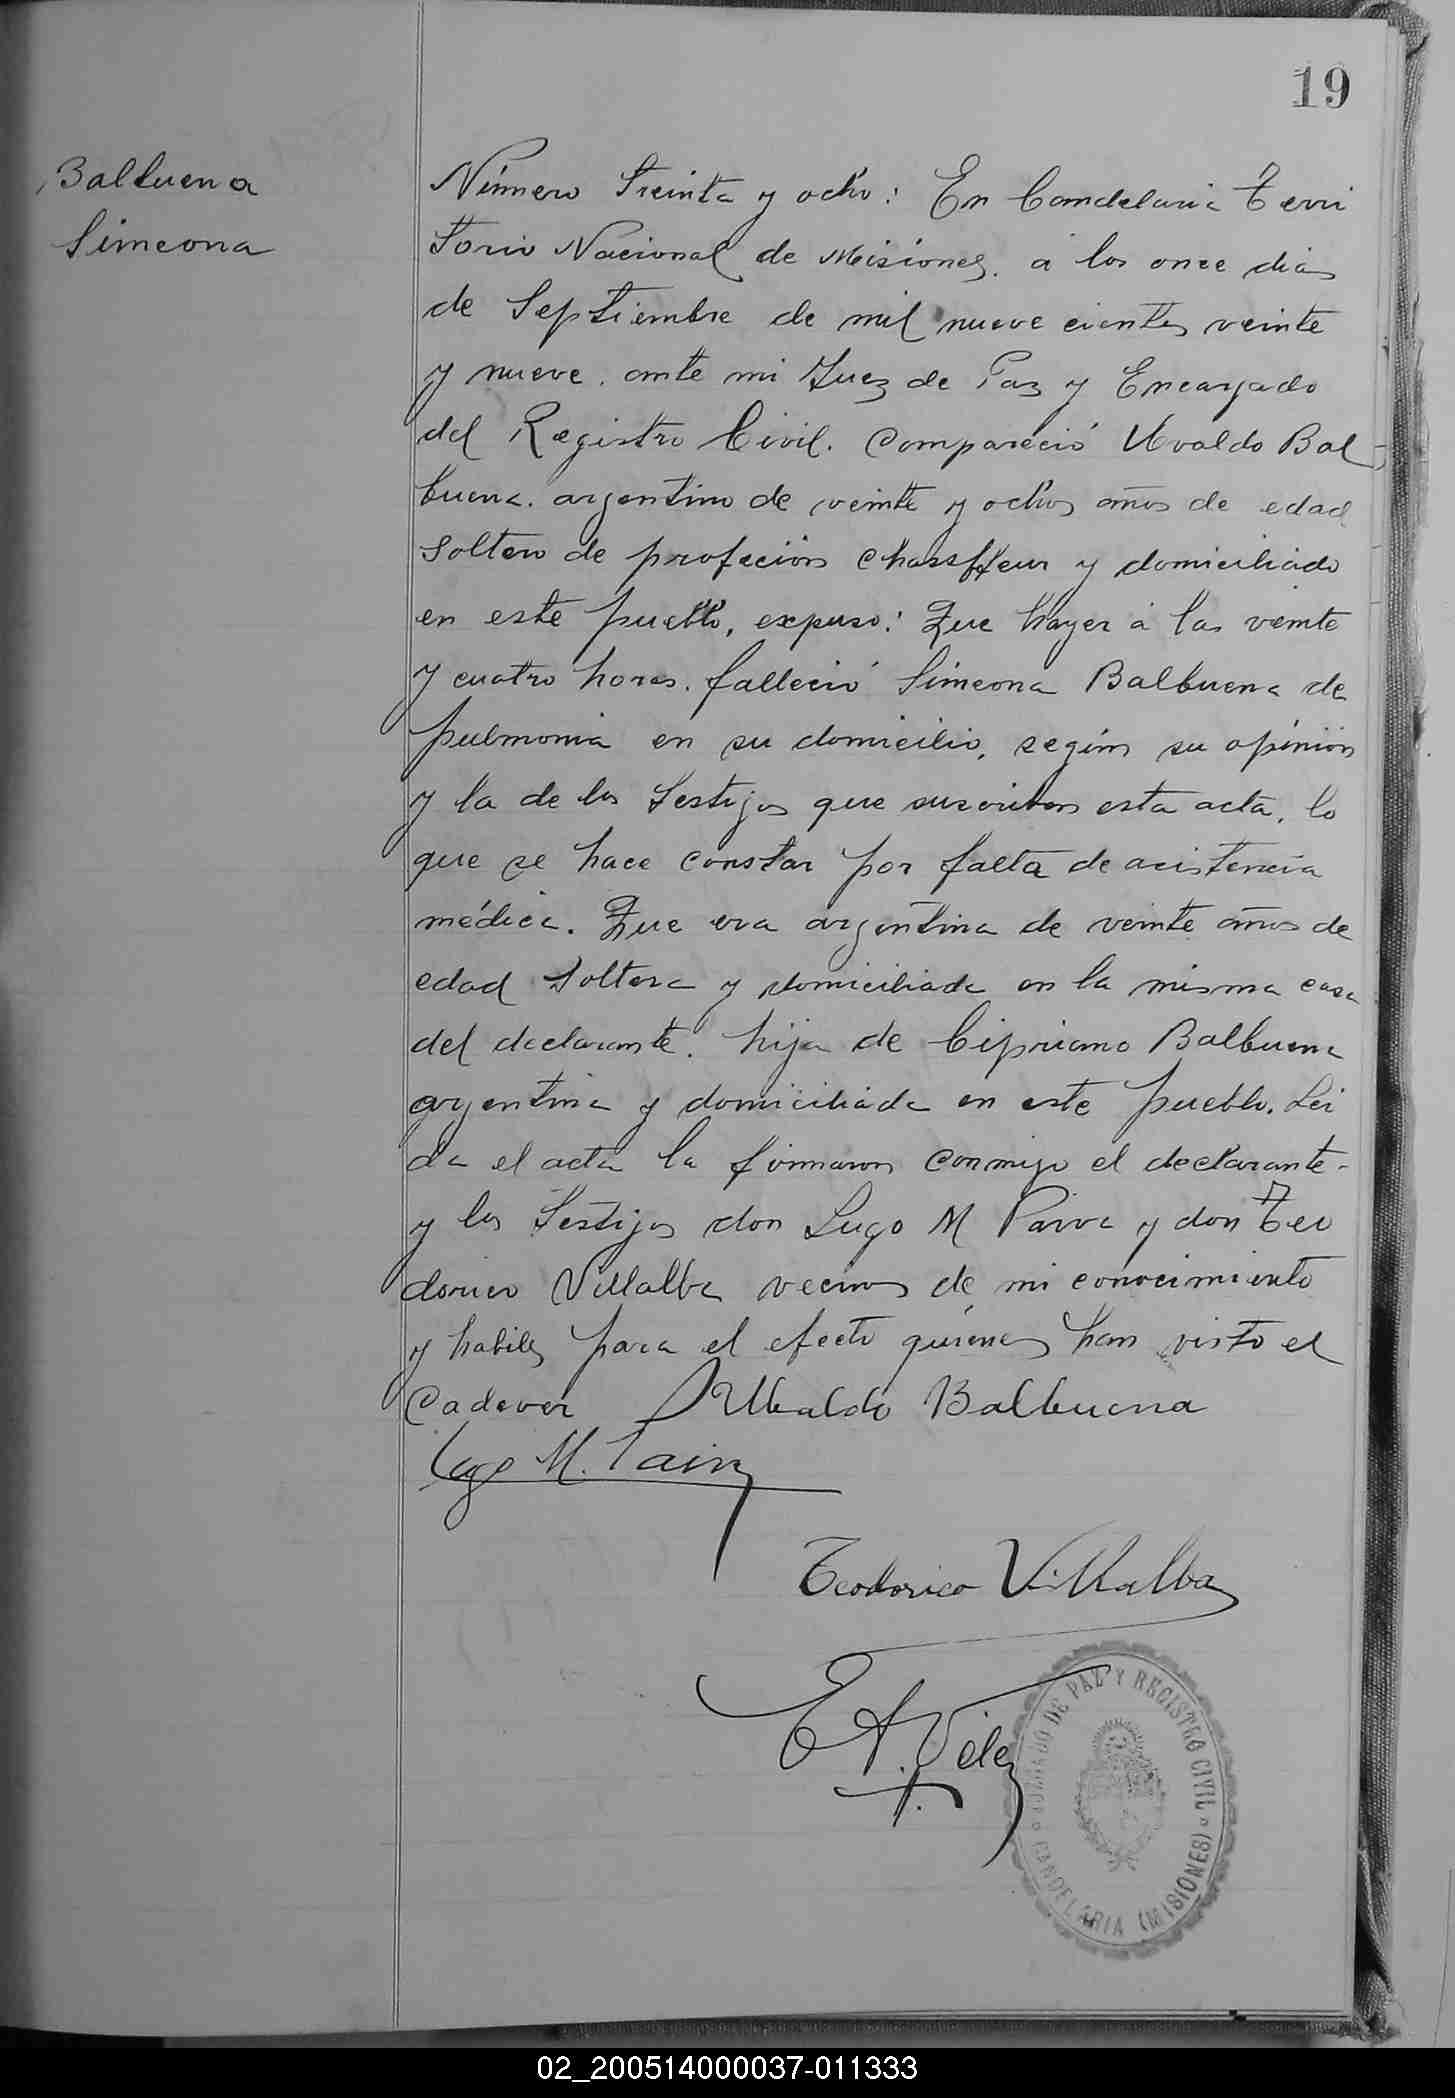 19
Balbuena
Simeona
Número treinta y ocho: En Candelaria Terri
torio Nacional de Misiones. á los once dias
de Septiembre de mil nueve cientos veinte
y nueve. ante mi Juez de Paz y Encargado
del Registro Civil. Compareció Uvaldo Bal
buena. argentino de veinte y ochos años de edad
soltero de profeción chassffeur y domiciliado
en este pueblo, expuso: Que hayer á las veinte
y cuatro horas. falleció Simeona Balbuena de
pulmonia en su domicilio, según su opinión
y la de los testigos que suscriben esta acta, lo
que se hace constar por falta de acistencia
médica. Que era argentina de veinte años de
edad soltera y domiciliada en la misma casa
del declarante. hija de Cipriano Balbuena
argentina y domiciliada en este pueblo. Lei
da el acta la firmaron conmigo el declarante-
y los testigos don Lugo M Paiva y don Teo
dorico Villalba vecinos de mi conocimiento
y habiles para el efecto quienes han visto el
Cadaver Ubaldo Balbuena
Lugo M. Paiva
Teodorico Villalba
E A. Velez
JUZGADO DE PAZ Y REGISTRO CIVIL
CANDELARIA (MISIONES)
02_200514000037-011333